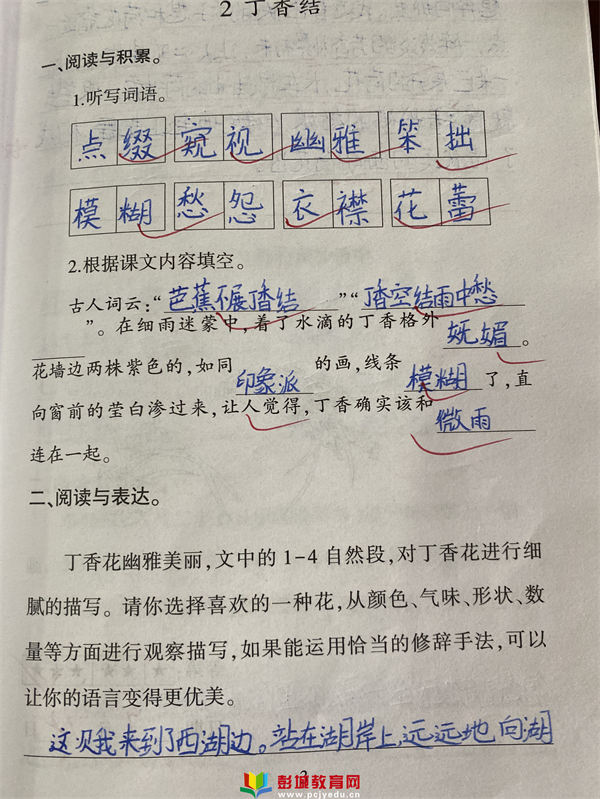 2 丁香结
一、阅读与积累。
1.听写词语。
点缀 窥视 幽雅 笨拙
模糊 愁怨 衣襟 花蕾
2.根据课文内容填空。
古人词云:“芭蕉不展丁香结”“丁香空结雨中愁
”。在细雨迷蒙中,着了水滴的丁香格外妩媚。
花墙边两株紫色的,如同印象派的画,线条模糊了,直
向窗前的莹白渗过来,让人觉得,丁香确实该和微雨
连在一起。
二、阅读与表达。
丁香花幽雅美丽,文中的1-4自然段,对丁香花进行细
腻的描写。请你选择喜欢的一种花,从颜色、气味、形状、数
量等方面进行观察描写,如果能运用恰当的修辞手法,可以
让你的语言变得更优美。
这次我来到了西湖边。站在湖岸上,远远地向湖
彭城教育网
www.pcjyedu.cn